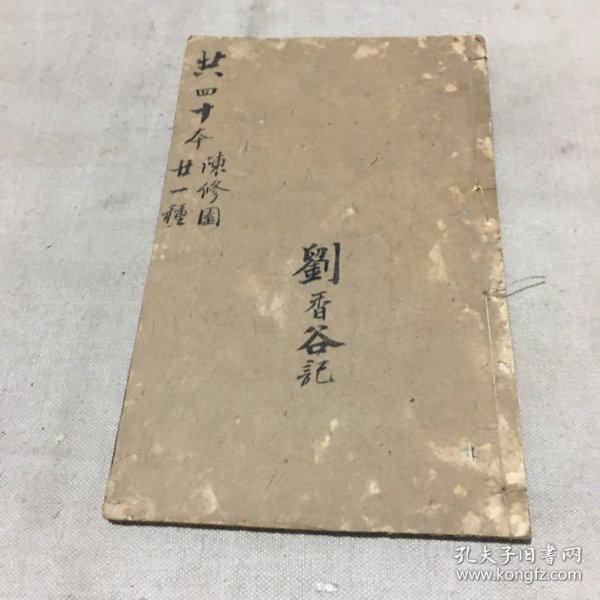 共四十本
陳修園
廿一種
劉香谷記
孔夫子旧书网
www.kongfz.com